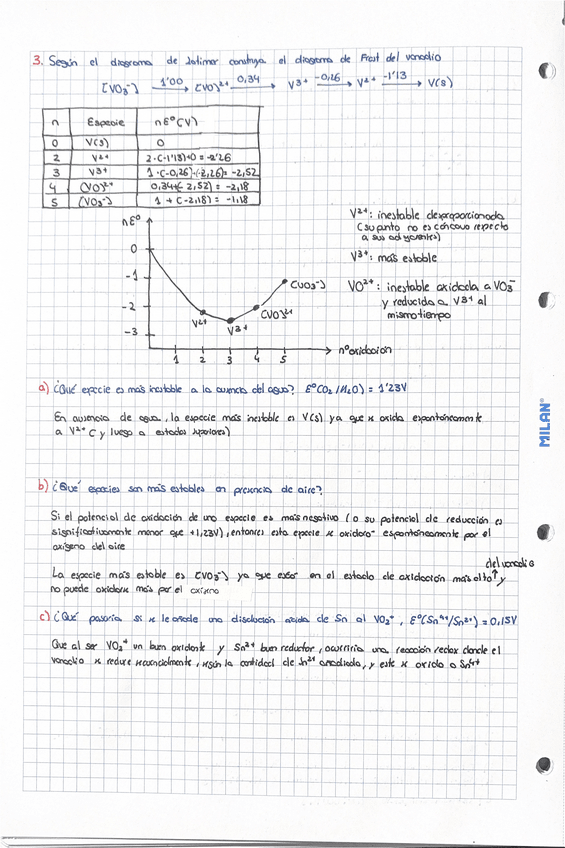 3. Según el diagrama de Latimer construya el diagrama de Frost del vanadio
[VO3-] 1'00 → [VO]2+ 0,34 → V3+ -0,26 → V2+ -1'13 → V(s)
n Especie nEº(V)
0 V(s) 0
2 V2+ 2·(-1'13)+0 = -2'26
3 V3+ 1·(-0,26)+(-2,26) = -2,52
4 (VO)2+ 0,34+(-2,52) = -2,18
5 (VO3-) 1 + (-2,18) = -1,18
nEº
0
-1
-2
-3
V2+
V3+
(VO)2+
(VO3-)
1 2 3 4 5
nº oxidación
V2+: inestable desproporcionada
(su punto no es cóncavo respecto
a sus adyacentes)
V3+: más estable
VO2+: inestable oxidada a VO3-
y reducida a V3+ al
mismo tiempo
a) ¿Qué especie es más inestable a la ausencia del agua? Eº(O2/H2O) = 1'23V
En ausencia de agua, la especie más inestable es V(s) ya que se oxida espontáneamente
a V2+ (y luego a estados superiores)
b) ¿Qué especies son más estables en presencia de aire?
Si el potencial de oxidación de una especie es más negativo (o su potencial de reducción es
significativamente menor que +1,23V), entonces esta especie se oxidará espontáneamente por el
oxígeno del aire
del vanadio
La especie más estable es (VO3-) ya que están en el estado de oxidación más alto y
no puede oxidarse más por el oxígeno
c) ¿Qué pasaría si se le añade una disolución ácida de Sn al VO2+, Eº(Sn4+/Sn2+) = 0,15V
Que al ser VO2+ un buen oxidante y Sn2+ buen reductor, ocurriría una reacción redox donde el
vanadio se reduce secuencialmente, según la cantidad de Sn2+ añadida, y este se oxida a Sn4+
MILAN